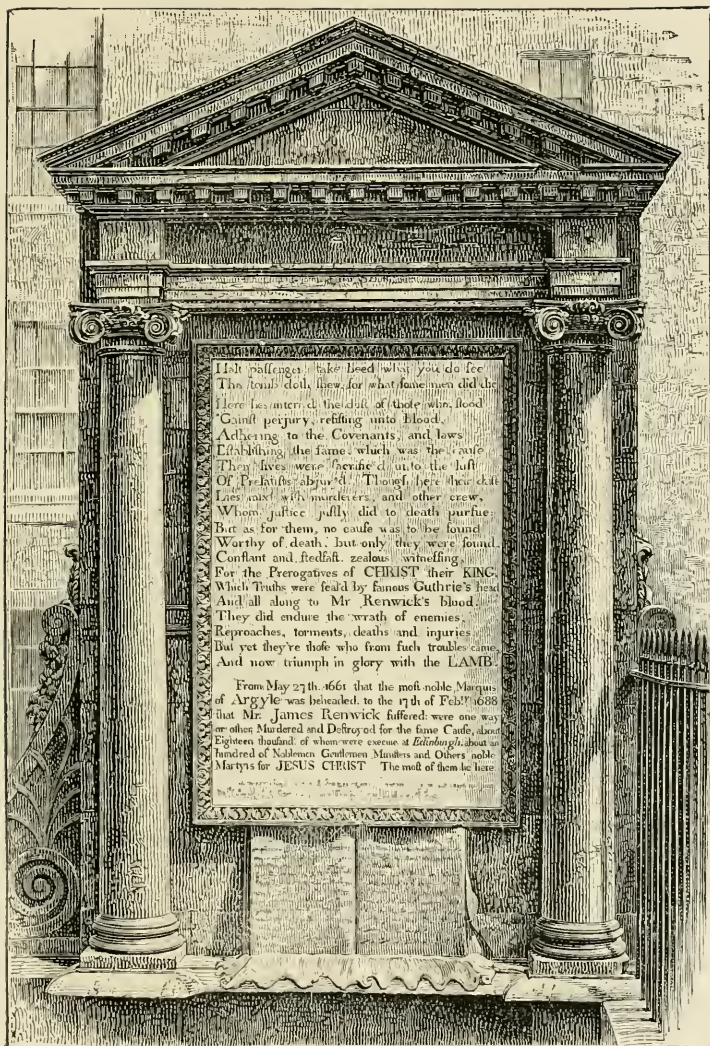 Halt passenger, take heed what you do see
This tomb doth shew, for what some men did die
Here lies interr'd the dust of those who stood
'Gainst perjury, resisting unto blood,
Adhering to the Covenants, and laws
Establishing the same, which was the cause
Their lives were sacrific'd unto the lust
Of Prelatists abjur'd. Though here their dust
Lies mixt with murderers, and other crew,
Whom justice justly did to death pursue:
But as for them, no cause was to be found
Worthy of death, but only they were found,
Constant and stedfast, zealous witnessing,
For the Prerogatives of CHRIST their KING,
Which Truths were seal'd by famous Guthrie's head
And all along to Mr Renwick's blood.
They did endure the wrath of enemies,
Reproaches, torments, deaths and injuries.
But yet they're those who from such troubles came,
And now triumph in glory with the LAMB.
From May 27th. 1661 that the most noble Marquis
of Argyle was beheaded. to the 17th of Febry 1688
that Mr. James Renwick suffered: were one way
or other Murdered and Destroyed for the same Cause, about
Eighteen thousand: of whom were execute at Edinburgh, about an
hundred of Noblemen Gentlemen Ministers and Others noble
Martyrs for JESUS CHRIST The most of them lie here